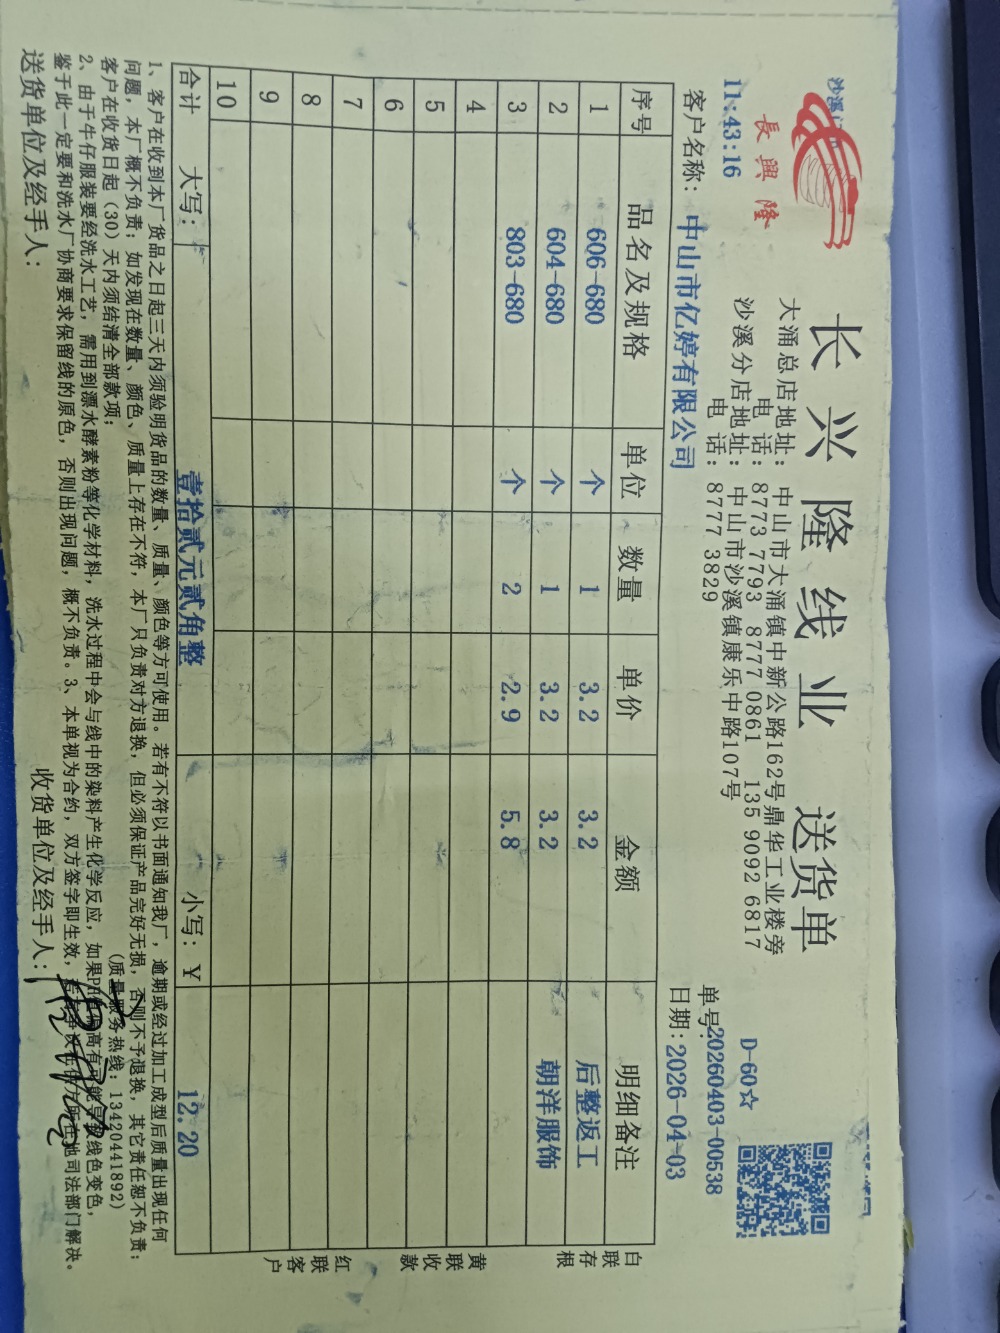 長興隆
长兴隆线业 送货单
大涌总店地址：中山市大涌镇中新公路162号鼎华工业楼旁
电 话：8773 7793 8777 0861 135 9092 6817
沙溪分店地址：中山市沙溪镇康乐中路107号
电 话：8777 3829
D-60☆
11:43:16
单号:20260403-00538
客户名称：中山市亿婷有限公司
日期:2026-04-03
序号 品名及规格 单位 数量 单价 金额 明细备注
1 606-680 个 1 3.2 3.2 后整返工
2 604-680 个 1 3.2 3.2 朝洋服饰
3 803-680 个 2 2.9 5.8
4
5
6
7
8
9
10
合计 大写：壹拾贰元贰角整 小写：￥ 12.20
白联存根
黄联收款
红联客户
1、客户在收到本厂货品之日起三天内须验明货品的数量、质量、颜色等方可使用。若有不符以书面通知我厂，逾期或经过加工成型后质量出现任何
问题，本厂概不负责；如发现在数量、颜色、质量上存在不符，本厂只负责对方退换，但必须保证产品完好无损，否则不予退换，其它责任恕不负责；
客户在收货日起（30）天内须结清全部款项；
（质量服务热线：13420441892）
2、由于牛仔服装要经洗水工艺，需用到漂水酵素粉等化学材料，洗水过程中会与线中的染料产生化学反应，如果PH值偏高有可能导致线色变色，
鉴于此一定要和洗水厂协商要求保留线的原色，否则出现问题，概不负责。3、本单视为合约，双方签字即生效，所在地司法部门解决。
送货单位及经手人：
收货单位及经手人：